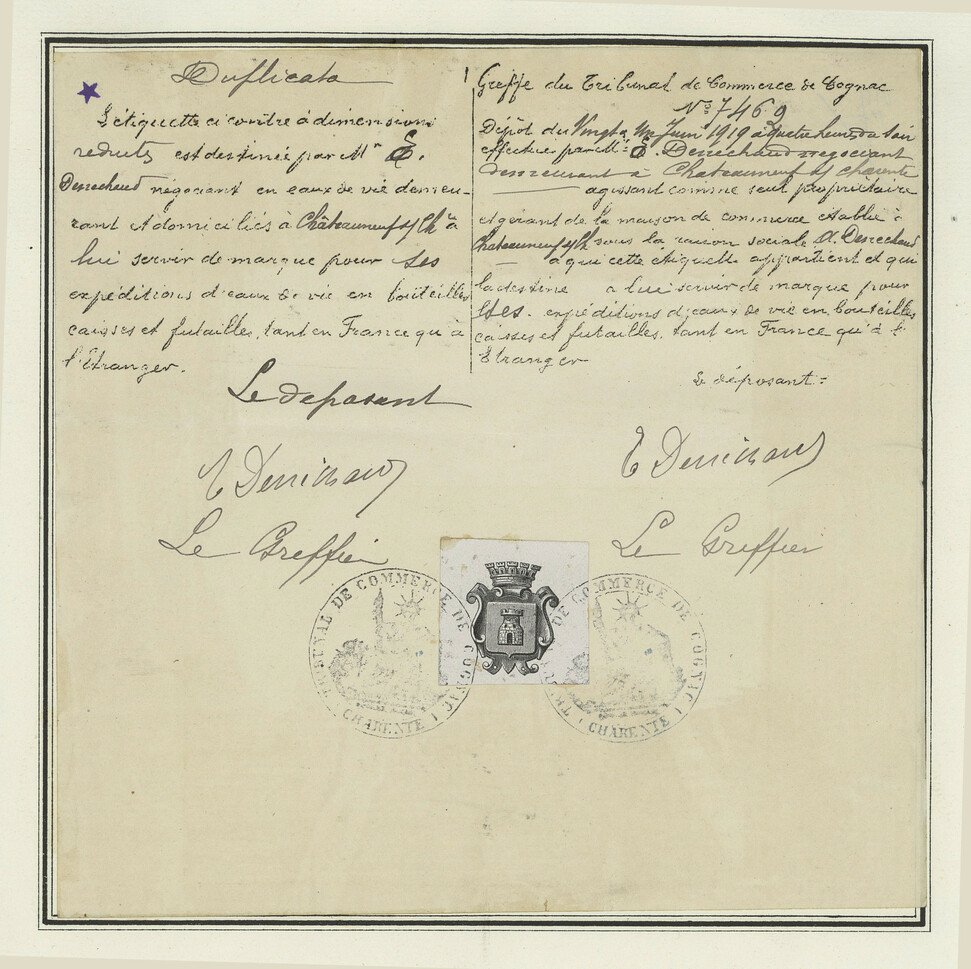 Duplicata
L'étiquette ci contre à dimensions
reduits est destinée par Mr E.
Desrechaud négociant en eaux de vie demeu-
rant et domiciliés à Châteauneuf s/ Ch à
lui servir de marque pour ses
expéditions d'eaux de vie en bouteilles
caisses et futailles, tant en France qu'à
l'Etranger.
Le deposant
Le Greffier
Greffe du Tribunal de Commerce de Cognac
No 7469
Dépôt du Vingt & Un Juin 1919 à Quatre heures du Soir
effectué par Mr E. Desrechaud negociant
demeurant à Chateauneuf s/ charente
agissant comme seul propriétaire
et gérant de la maison de commerce établie à
Chateauneuf s/ Ch sous la raison sociale A. Desrechaud
à qui cette étiquette appartient et qui
la destine à lui servir de marque pour
ses expéditions d'eaux de vie en bouteilles
caisses et futailles, tant en France qu'à l'
Etranger
Le déposant =
Le Greffier
TRIBUNAL DE COMMERCE DE COGNAC
(CHARENTE)
TRIBUNAL DE COMMERCE DE COGNAC
(CHARENTE)